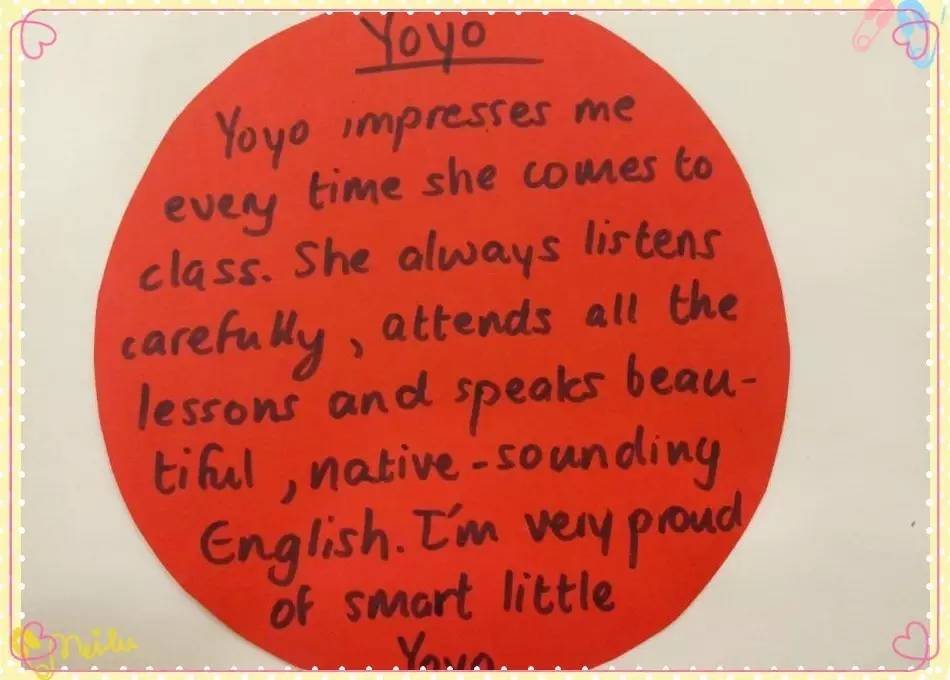 Yoyo
Yoyo impresses me
every time she comes to
class. She always listens
carefully, attends all the
lessons and speaks beau-
tiful, native-sounding
English. I'm very proud
of smart little
Yoyo